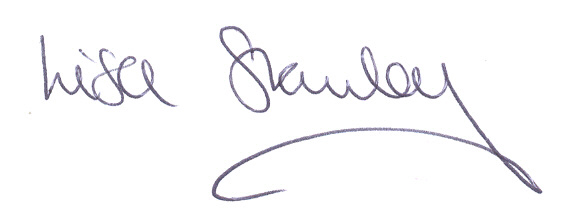 Lisa Stanley